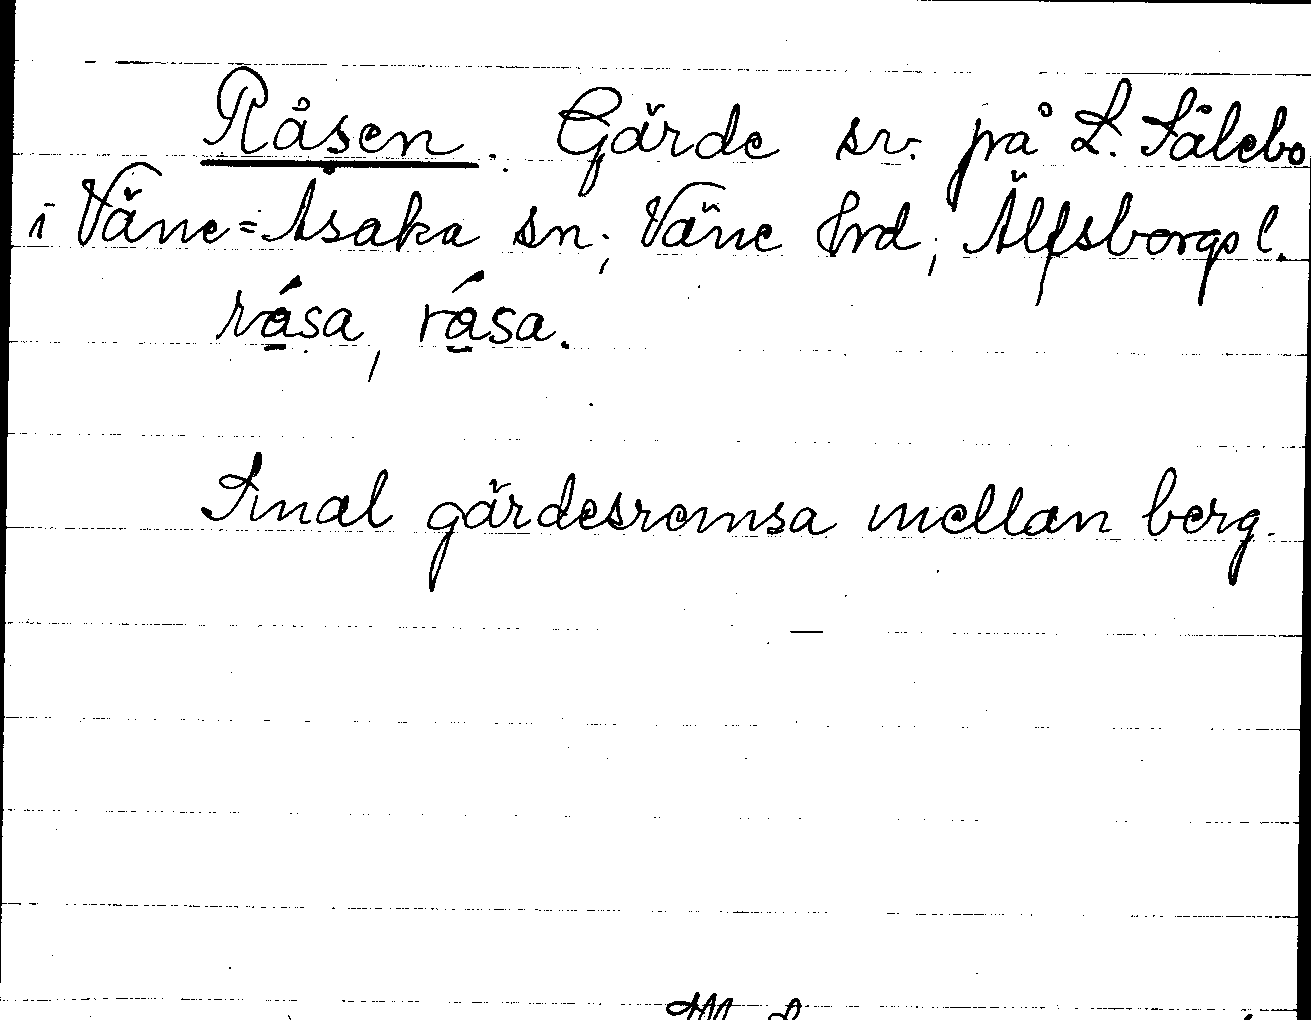 Råsen. Gärde sv. på L. Sålebo
i Väne=Åsaka sn, Väne hrd, Älfsborgs l.
rása, rása.
Smal gärdesremsa mellan berg.